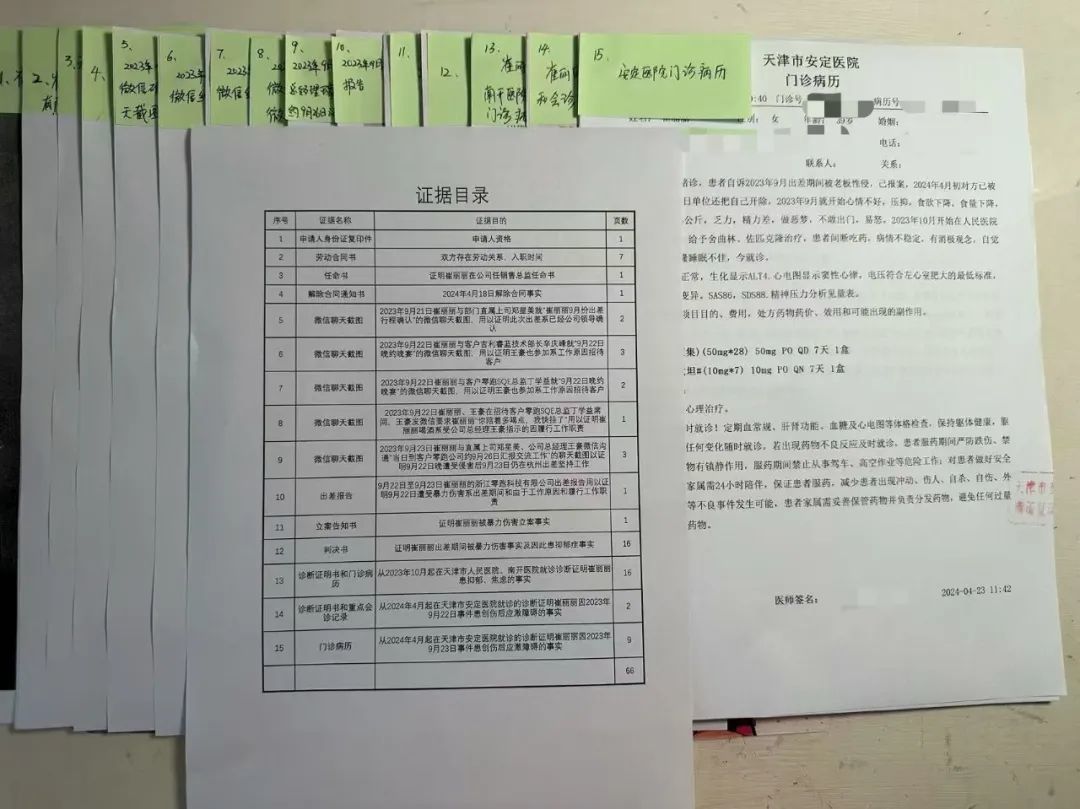 1、
2、
3、
4、
5、
2023年
微信
天截图
6、
2023年
微信
7、
2023
微信
8、
微
9、
2023年9月
总经理
10、
2023年9月
报告
11、
12、
13、
崔丽
南开医院
门诊病
14、
崔丽
和会诊
15、
安定医院门诊病历
证据目录
序号 证据名称 证据目的 页数
1 申请人身份证复印件 申请人资格 1
2 劳动合同书 双方存在劳动关系、入职时间 7
3 任命书 证明崔丽丽在公司任销售总监任命书 1
4 解除合同通知书 2024年4月18日解除合同事实 1
5 微信聊天截图 2023年9月21日崔丽丽与部门直属上司郑星美就"崔丽丽9月份出差
行程确认"的微信聊天截图,用以证明此次出差系已经公司领导确
认 2
6 微信聊天截图 2023年9月22日崔丽丽与客户吉利睿蓝技术部长辛庆峰就"9月22日
晚约晚宴"的微信聊天截图,用以证明王豪也参加系工作原因招待
客户 3
7 微信聊天截图 2023年9月22日崔丽丽与客户零跑SQE总监丁学益就"9月22日晚约
晚宴"的微信聊天截图,用以证明王豪也参加系工作原因招待客户 2
8 微信聊天截图 2023年9月22日崔丽丽、王豪在招待客户零跑SQE总监丁学益席
间,王豪发微信要求崔丽丽"你陪着多喝点,我快挂了"用以证明崔
丽丽喝酒系受公司总经理王豪指示的因履行工作职责 1
9 微信聊天截图 2023年9月23日崔丽丽与直属上司郑星美、公司总经理王豪微信沟
通"当日到客户零跑公司约9月26日汇报交流工作"的聊天截图以证
明9月22日晚遭受侵害后9月23日仍在杭州出差坚持工作 3
10 出差报告 9月22日至9月23日崔丽丽的浙江零跑科技有限公司出差报告用以证
明9月22日遭受暴力伤害系出差期间和由于工作原因和履行工作职
责 1
11 立案告知书 证明崔丽丽被暴力伤害立案事实 1
12 判决书 证明崔丽丽出差期间被暴力伤害事实及因此患抑郁症事实 16
13 诊断证明书和门诊病
历 从2023年10月起在天津市人民医院、南开医院就诊诊断证明崔丽丽
患抑郁、焦虑的事实 16
14 诊断证明书和重点会
诊记录 从2024年4月起在天津市安定医院就诊的诊断证明崔丽丽因2023年
9月22日事件患创伤后应激障碍的事实 2
15 门诊病历 从2024年4月起在天津市安定医院就诊的诊断证明崔丽丽因2023年
9月23日事件患创伤后应激障碍的事实 9
66
天津市安定医院
门诊病历
:40 门诊号 病历号
女 39岁 婚姻:
电话:
联系人: 关系:
诊,患者自诉2023年9月出差期间被老板性侵,已报案,2024年4月初对方已被
日单位还把自己开除,2023年9月就开始心情不好,压抑,食欲下降,食量下降,
公斤,乏力,精力差,做恶梦,不敢出门,易怒。2023年10月开始在人民医院
给予舍曲林、佐匹克隆治疗,患者间断吃药,病情不稳定,有消极观念,自觉
睡眠不佳,今就诊。
正常,生化显示ALT4.心电图显示窦性心律,电压符合左心室肥大的最低标准,
变异,SAS86,SDS88.精神压力分析见量表。
项目目的、费用,处方药物药价、效用和可能出现的副作用。
集)(50mg*28) 50mg PO QD 7天 1盒
坦■(10mg*7) 10mg PO QN 7天 1盒
心理治疗。
时就诊!定期血常规、肝肾功能、血糖及心电图等体格检查,保持躯体健康,躯
任何变化随时就诊,若出现药物不良反应及时就诊,患者服药期间严防跌伤、禁
物有镇静作用,服药期间禁止从事驾车、高空作业等危险工作;对患者做好安全
家属需24小时陪伴,保证患者服药,减少患者出现冲动、伤人、自杀、自伤、外
等不良事件发生可能,患者家属需妥善保管药物并负责分发药物,避免任何过量
药物。
天津市安
医师签名:
2024-04-23 11:42